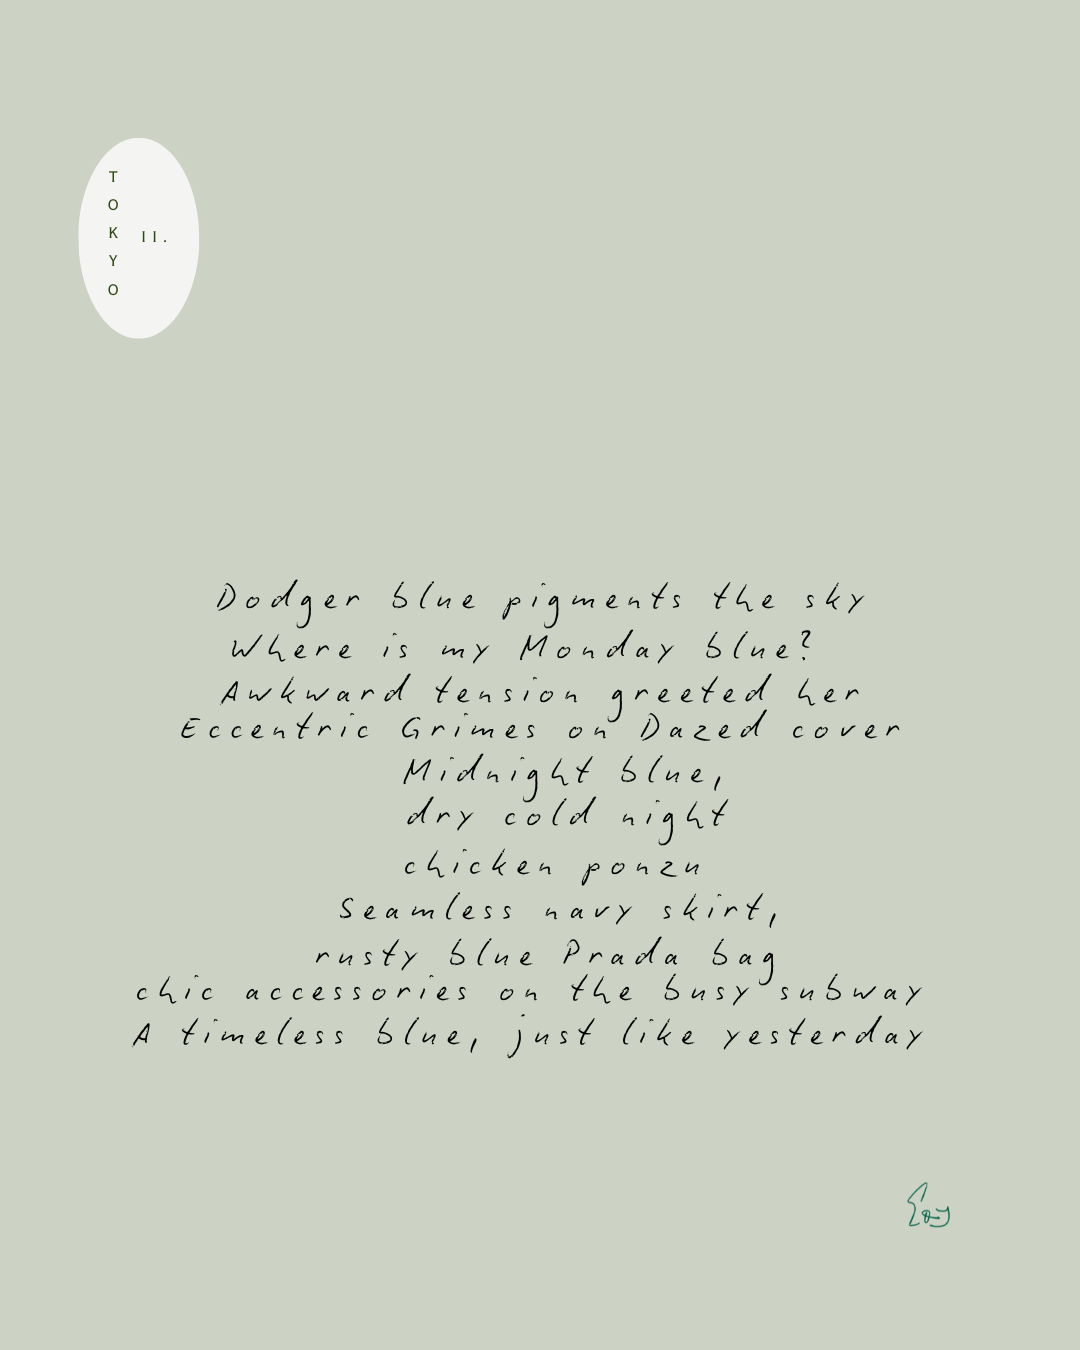 TOKYO
II.
Dodger blue pigments the sky
Where is my Monday blue?
Awkward tension greeted her
Eccentric Grimes on Dazed cover
Midnight blue,
dry cold night
chicken ponzu
Seamless navy skirt,
rusty blue Prada bag
chic accessories on the busy subway
A timeless blue, just like yesterday